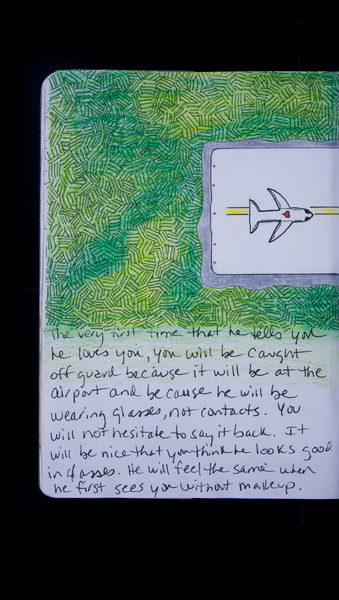 The very first time that he tells you
he loves you, you will be caught
off guard because it will be at the
airport and because he will be
wearing glasses, not contacts. You
will not hesitate to say it back. It
will be nice that you think he looks good
in glasses. He will feel the same when
he first sees you without makeup.